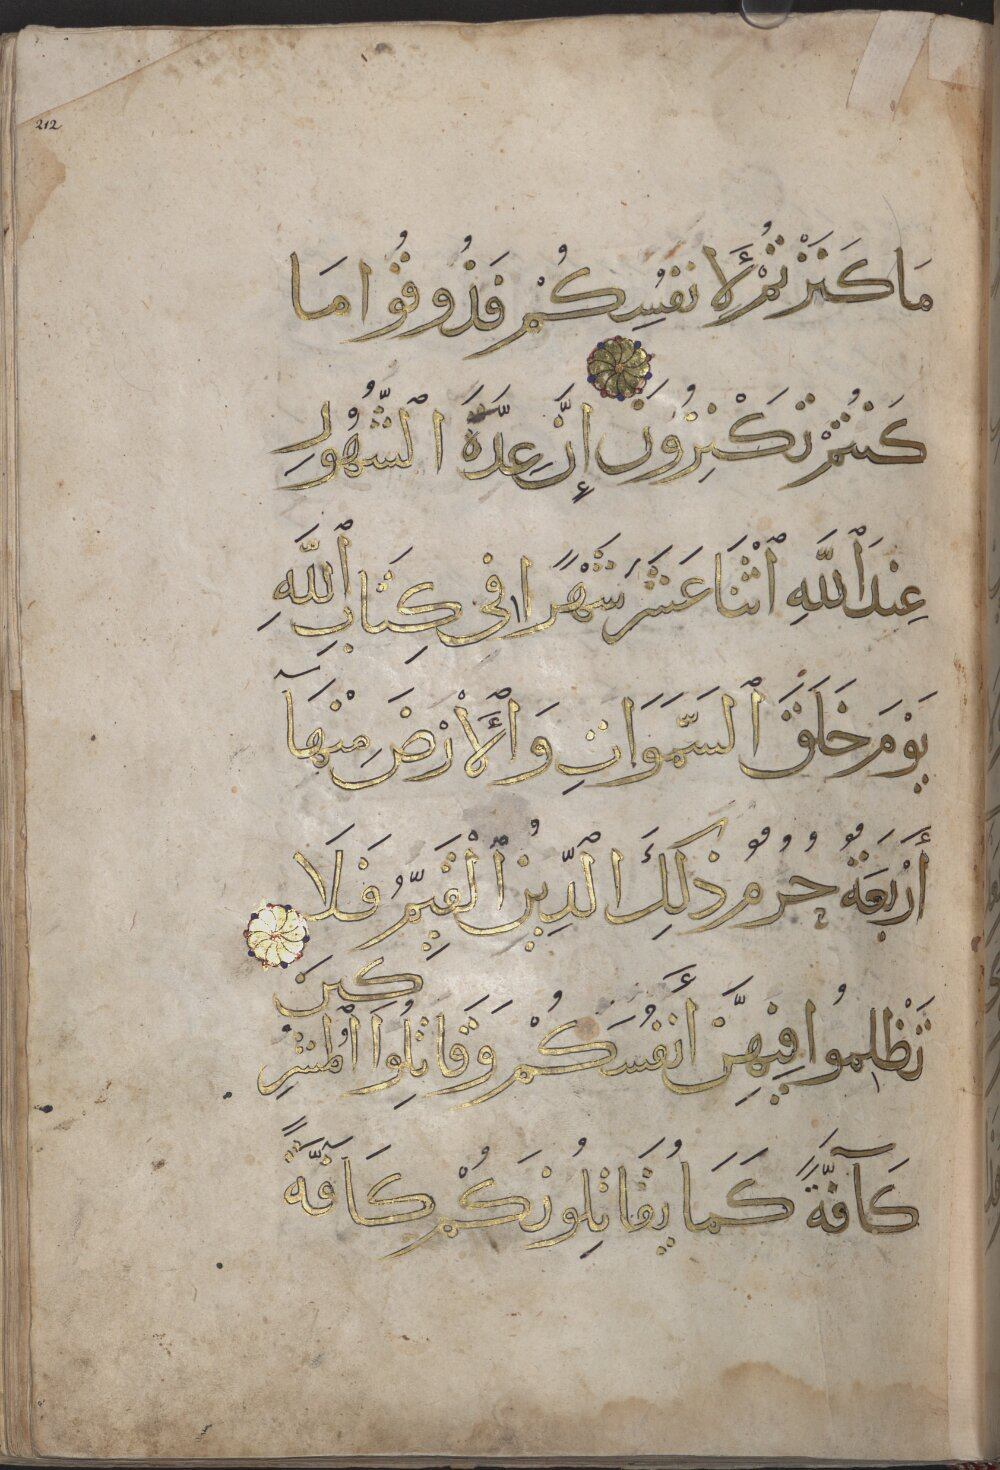 212
مَا كَنَزْتُمْ لِأَنفُسِكُمْ فَذُوقُوا مَا
كُنتُمْ تَكْنِزُونَ إِنَّ عِدَّةَ ٱلشُّهُورِ
عِندَ ٱللَّهِ ٱثْنَا عَشَرَ شَهْرًا فِي كِتَابِ ٱللَّهِ
يَوْمَ خَلَقَ ٱلسَّمَوَاتِ وَٱلْأَرْضَ مِنْهَآ
أَرْبَعَةٌ حُرُمٌ ذَلِكَ ٱلدِّينُ ٱلْقَيِّمُ فَلَا
تَظْلِمُوا فِيهِنَّ أَنفُسَكُمْ وَقَاتِلُوا ٱلْمُشْرِ
كِينَ
كَآفَّةً كَمَا يُقَاتِلُونَكُمْ كَآفَّةً